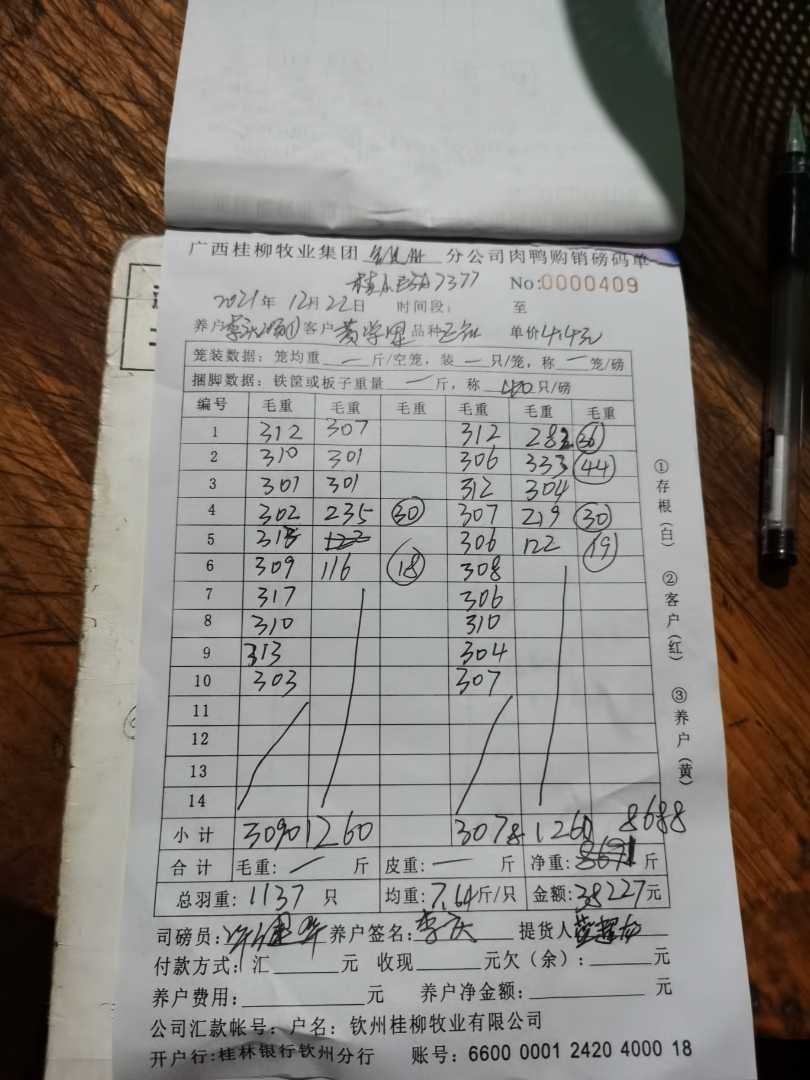 广西桂柳牧业集团 分公司肉鸭购销磅码单
7377 No:0000409
2021年 12月 22日 时间段: 至
养户 客户 黄学 品种 单价 4.4元
笼装数据: 笼均重 — 斤/空笼, 装 — 只/笼, 称 — 笼/磅
捆脚数据: 铁筐或板子重量 — 斤, 称 只/磅
编号 毛重 毛重 毛重 毛重 毛重 毛重
1 312 307 312 282 36
2 310 301 306 333 44
3 301 301 312 304
4 302 235 30 307 219 30
5 313 122 306 122 19
6 309 116 18 308
7 317 306
8 310 310
9 313 304
10 303 307
11
12
13
14
小计 3090 1260 3078 1260 8688
合计 毛重: — 斤 皮重: — 斤 净重: 斤
总羽重: 1137 只 均重: 7.64斤/只 金额: 38227元
司磅员: 养户签名: 李 提货人
付款方式: 汇 元 收现 元欠(余): 元
养户费用: 元 养户净金额: 元
公司汇款帐号: 户名: 钦州桂柳牧业有限公司
开户行: 桂林银行钦州分行 账号: 6600 0001 2420 4000 18
①存根(白) ②客户(红) ③养户(黄)